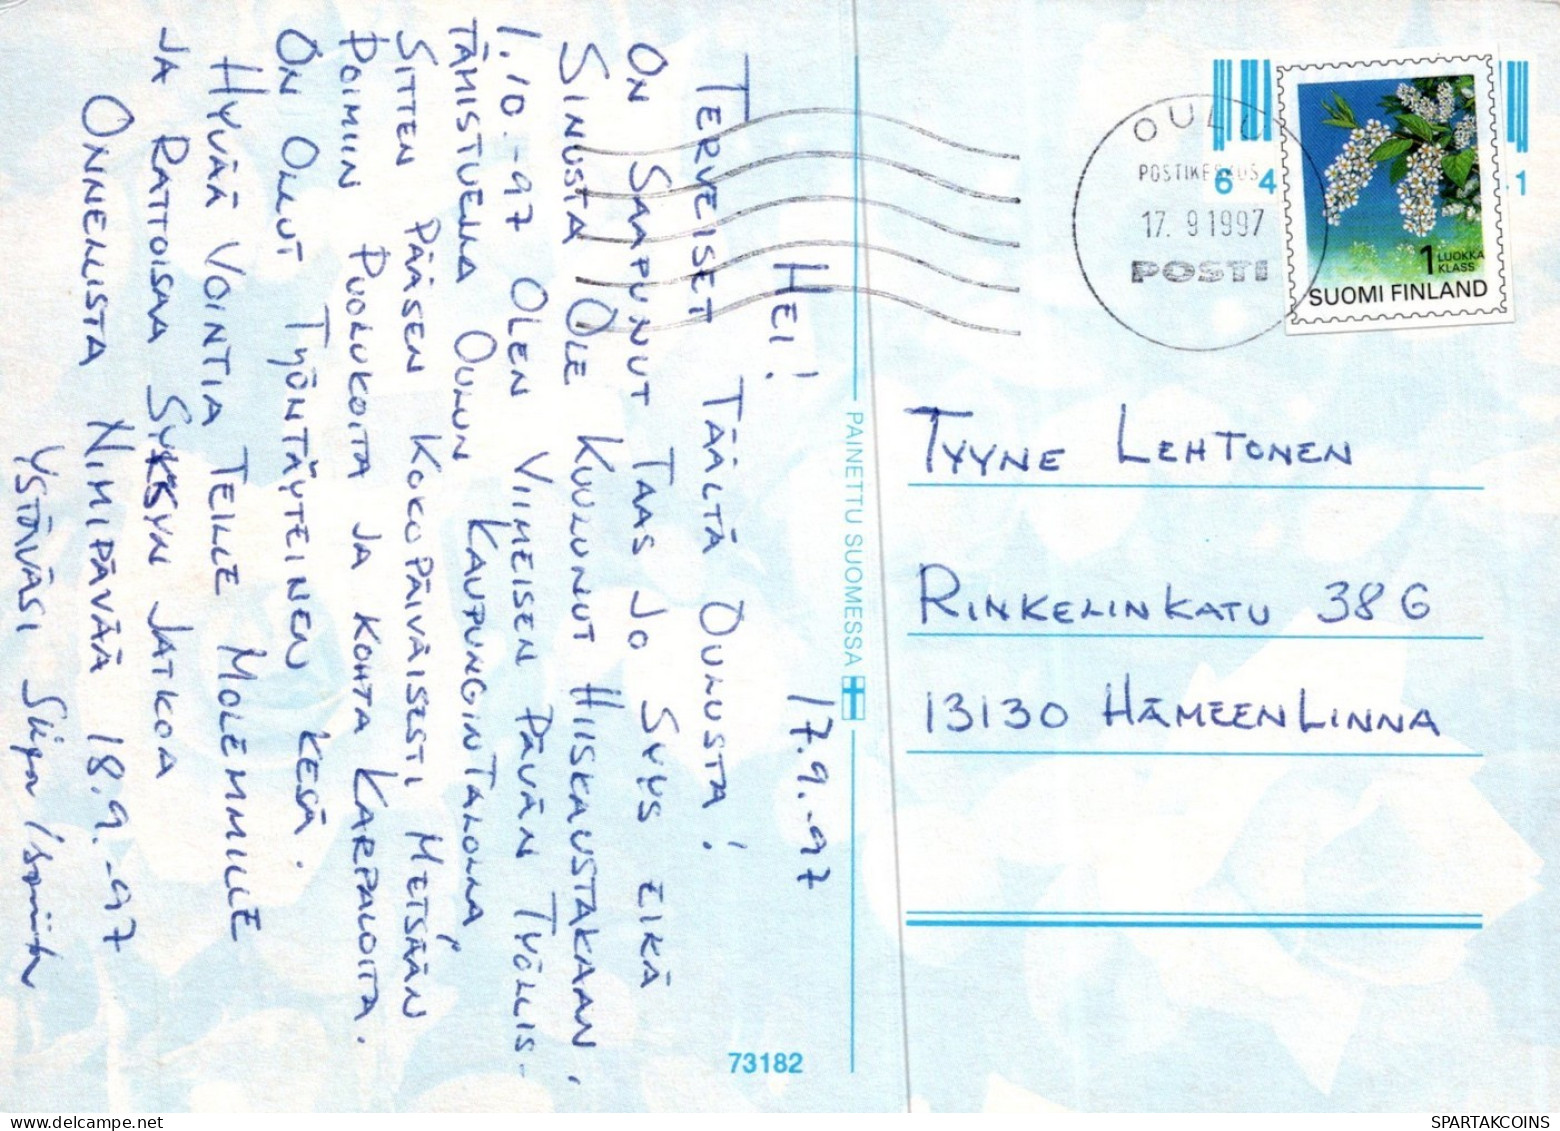 Hei!
17.9.-97
Terveiset Täältä Oulusta!
On Saapunut Taas Jo Syys Eikä
Sinusta Ole Kuulunut Hiiskaustakaan.
1.10.-97 Olen Viimeisen Päivän Työllis-
tämistuella Oulun Kaupungin Talolla,
Sitten Pääsen Kokopäiväisesti Metsään
Poimiin Puolukoita ja kohta Karpaloita.
On Ollut Työntäyteinen kesä.
Hyvää Vointia Teille Molemmille
ja Rattoisaa Syksyn Jatkoa
Onnellista Nimipävää 18.9.-97
Ystäväsi
PAINETTU SUOMESSA
73182
OULU
POSTIKESKUS
17. 9 1997
POSTI
6 4
1
1 LUOKKA
KLASS
SUOMI FINLAND
Tyyne Lehtonen
Rinkelinkatu 38 G
13130 Hämeenlinna
SPARTAKCOINS